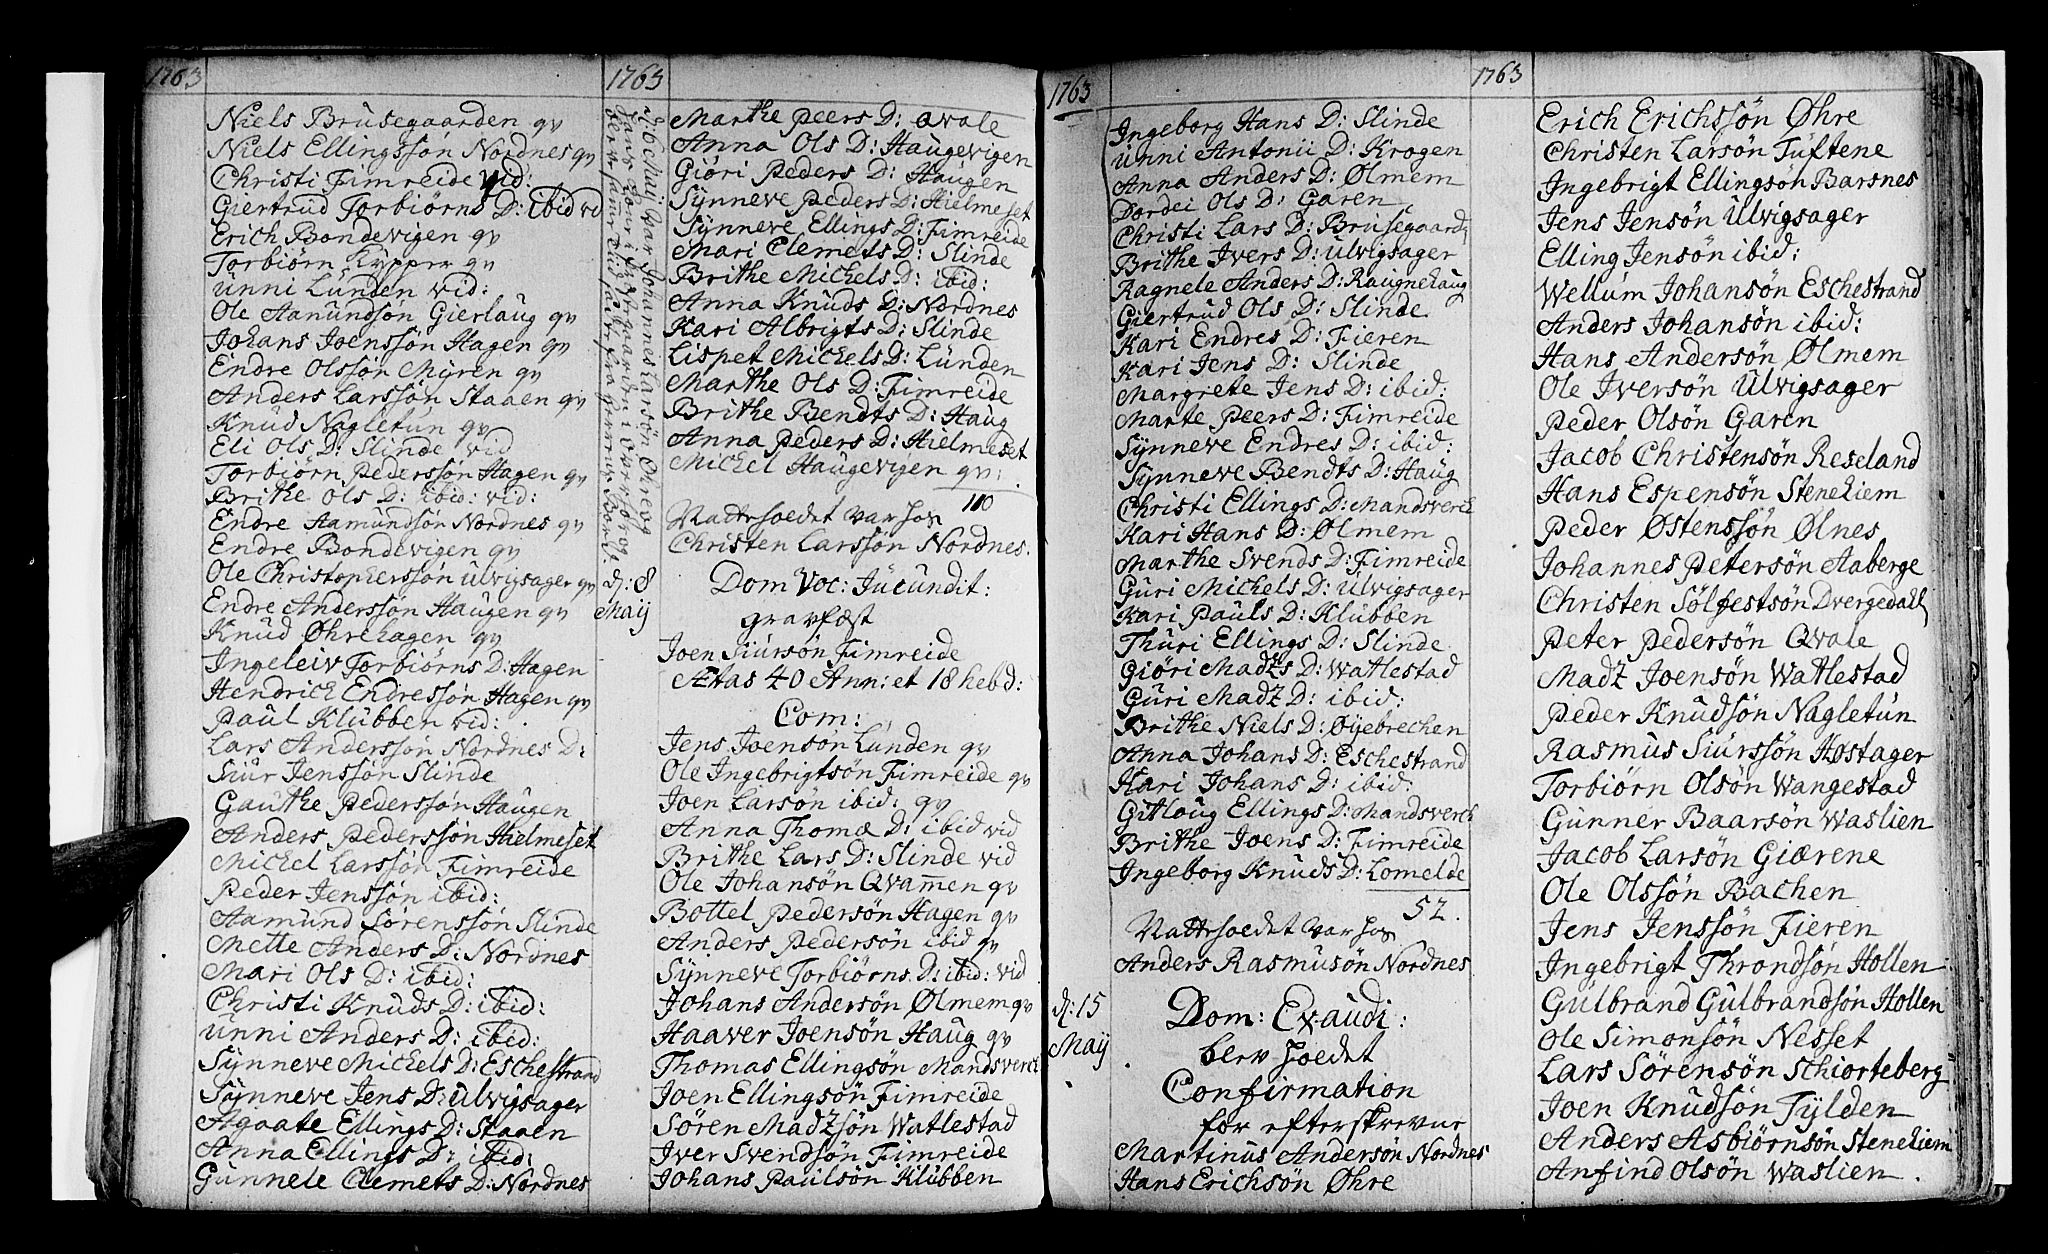 1763
Niels Brusegaarden qv
Niels Ellingssøn Nordnes qv
Christi Fimreide vid:
Giertrud Torbiørns D: ibid vid
Erich Bondevigen qv
Torbiørn Kypper qv
Unni Lunden vid:
Ole Aamundsøn Gierlaug qv
Johans Joenssøn Hagen qv
Endre Olssøn Myren qv
Anders Larssøn Staaen qv
Knud Nagletun qv
Eli Ols D: Slinde vid
Torbiørn Pederssøn Hagen qv
Brithe Ols D: ibid: vid:
Endre Aamundsøn Nordnes qv
Endre Bondevigen qv
Ole Christopherssøn Ulvigsager qv
Endre Anderssøn Haugen qv
Knud Øhrehagen qv
Ingeleiv Torbiørns D: Hagen
Hendrich Endressøn Hagen qv
Paul Klubben vid:
Lars Anderssøn Nordnes D:
Siur Jenssøn Slinde
Gauthe Pederssøn Haugen
Anders Pederssøn Hielmeset
Michel Larssøn Fimreide
Peder Jenssøn ibid:
Aamund Sørenssøn Slinde
Mette Anders D: Nordnes
Mari Ols D: ibid:
Christi Knuds D: ibid:
Unni Anders D: ibid:
Synneve Michels D: Eschestrand
Synneve Jens D: Ulvigsager
Agaate Ellings D: Staaen
Anna Ellings D: ibid:
Gunnele Clemets D: Nordnes
1763
Johannes Larsøn Øhre og
d: 8
Maij
Marthe Peers D: Qvale
Anna Ols D: Haugevigen
Giøri Peders D: Haugen
Synneve Peders D: Hielmeset
Synneve Ellings D: Fimreide
Mari Clemets D: Slinde
Brithe Michels D: ibid:
Anna Knuds D: Nordnes
Kari Albrigts D: Slinde
Lispet Michels D: Lunden
Marthe Ols D: Fimreide
Brithe Bendts D: Haug
Anna Peders D: Hielmeset
Michel Haugevigen qv:
110
Nattrhoedet var hos
Christen Larssøn Nordnes.
Dom Voc: Jucundit:
gravfæst
Joen Siursøn Fimreide
Ætas 40 Ann: et 18 hebd:
Com:
Jens Joensøn Lunden qv
Ole Ingebrigtsøn Fimreide qv
Joen Larsøn ibid: qv
Anna Thomæ D: ibid vid
Brithe Lars D: Slinde vid
Ole Johansøn Qvammen qv
Bottel Pedersøn Hagen qv
Anders Pedersøn ibid qv
Synneve Torbiørns D: ibid: vid
Johans Andersøn Ølmem qv
Haaver Joensøn Haug qv
Thomas Ellingsøn Mandsverch
Joen Ellingsøn Fimreide
Søren Madzsøn Watlestad
Iver Svendsøn Fimreide
Johans Paulsøn Klubben
1763
Ingeborg Hans D: Slinde
Unni Antonii D: Krogen
Anna Anders D: Ølmem
Dordei Ols D: Garen
Christi Lars D: Brusegaard
Brithe Ivers D: Ulvigsager
Ragnele Anders D: Raugnehaug
Giertrud Ols D: Slinde
Kari Endres D: Fieren
Kari Jens D: Slinde
Margrete Jens D: ibid:
Marte Peers D: Fimreide
Synneve Endres D: ibid:
Synneve Bendts D: Haug
Christi Ellings D: Mandsverch
Kari Hans D: Ølmem
Marthe Svends D: Fimreide
Guri Michels D: Ulvigsager
Kari Pauls D: Klubben
Thuri Ellings D: Slinde
Giøri Madzs D: Watlestad
Guri Madz D: ibid:
Brithe Niels D: Øyebrechen
Anna Johans D: Eschestrand
Kari Johans D: ibid:
Gitlaug Ellings D: Mandsverch
Brithe Joens D: Fimreide
Ingeborg Knuds D: Lomelde
52.
Nattrhoedet var hos
Anders Rasmusøn Nordnes
d: 15
Maij
Dom: Exaudi:
blev hoedet
Confirmation
for efterskrevne
Martinus Andersøn Nordnes
Hans Erichsøn Øhre
1763
Erich Erichssøn Øhre
Christen Larsøn Tuftene
Ingebrigt Ellingsøn Barsnes
Jens Jensøn Ulvigsager
Elling Jensøn ibid:
Wellum Johansøn Eschestrand
Anders Johansøn ibid:
Hans Andersøn Ølmem
Ole Iversøn Ulvigsager
Peder Olsøn Garen
Jacob Christensøn Reseland
Hans Espensøn Stenehiem
Peder Østenssøn Ølnes
Johannes Petersøn Aaberge
Christen Sølfestsøn Dvergedall
Peter Pedersøn Qvale
Madz Joensøn Watlestad
Peder Knudsøn Nagletun
Rasmus Siurssøn Hostager
Torbiørn Olsøn Wangestad
Gunner Baarsøn Waslien
Jacob Larsøn Giærene
Ole Olssøn Bachen
Jens Jenssøn Fieren
Ingebrigt Throndsøn Hollen
Gulbrand Gulbrandsøn Hollen
Ole Simonsøn Nesset
Lars Sørensøn Schiorteberg
Joen Knudsøn Tylden
Anders Asbiørnsøn Stenehiem
Anfind Olsøn Waslien.